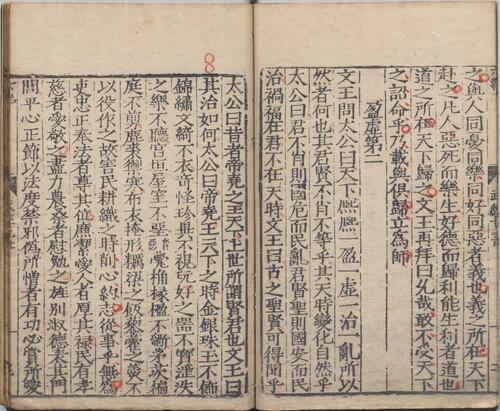 之與人同憂同樂同好同惡者義也義之所在天下
赴之凡人惡死而樂生好德而歸利能生利者道也
道之所在天下歸之文王再拜曰允哉敢不受天下
之詔命乎乃載與俱歸立為師
盈虛第二
文王問太公曰天下熙熙一盈一虛一治一亂所以
然者何也其君賢不肖不等乎其天時變化自然乎
太公曰君不肖則國危而民亂君賢聖則國安而民
治禍福在君不在天時文王曰古之聖賢可得聞乎
太公曰昔者帝堯之王天下上世所謂賢君也文王曰
其治如何太公曰帝堯王天下之時金銀珠玉不飾
錦繡文綺不衣奇怪珍異不視玩好之器不寶淫泆
之樂不聽宮垣屋室不堊甍桷椽楹不斲茅茨徧
庭不剪鹿裘禦寒布衣掩形糲粱之飯藜藿之羹不
以役作之故害民耕織之時削心約志從事乎無為
吏忠正奉法者尊其位廉潔愛人者厚其祿民有孝
慈者愛敬之盡力農桑者慰勉之旌別淑德表其門
閭平心正節以法度禁邪偽所憎者有功必賞所愛